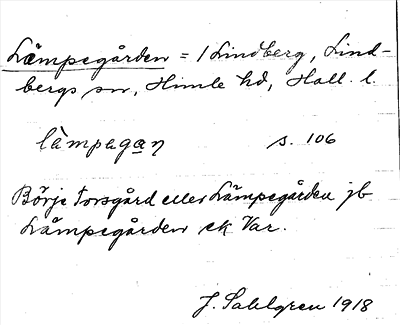 Lämpegården = 1 Lindberg, Lind-
bergs sn, Himle hd, Hall. l.
lämpagan s. 106
Börje Torsgård eller Lämpegården jb
Lämpegården ek Var.
J. Sahlgren 1918